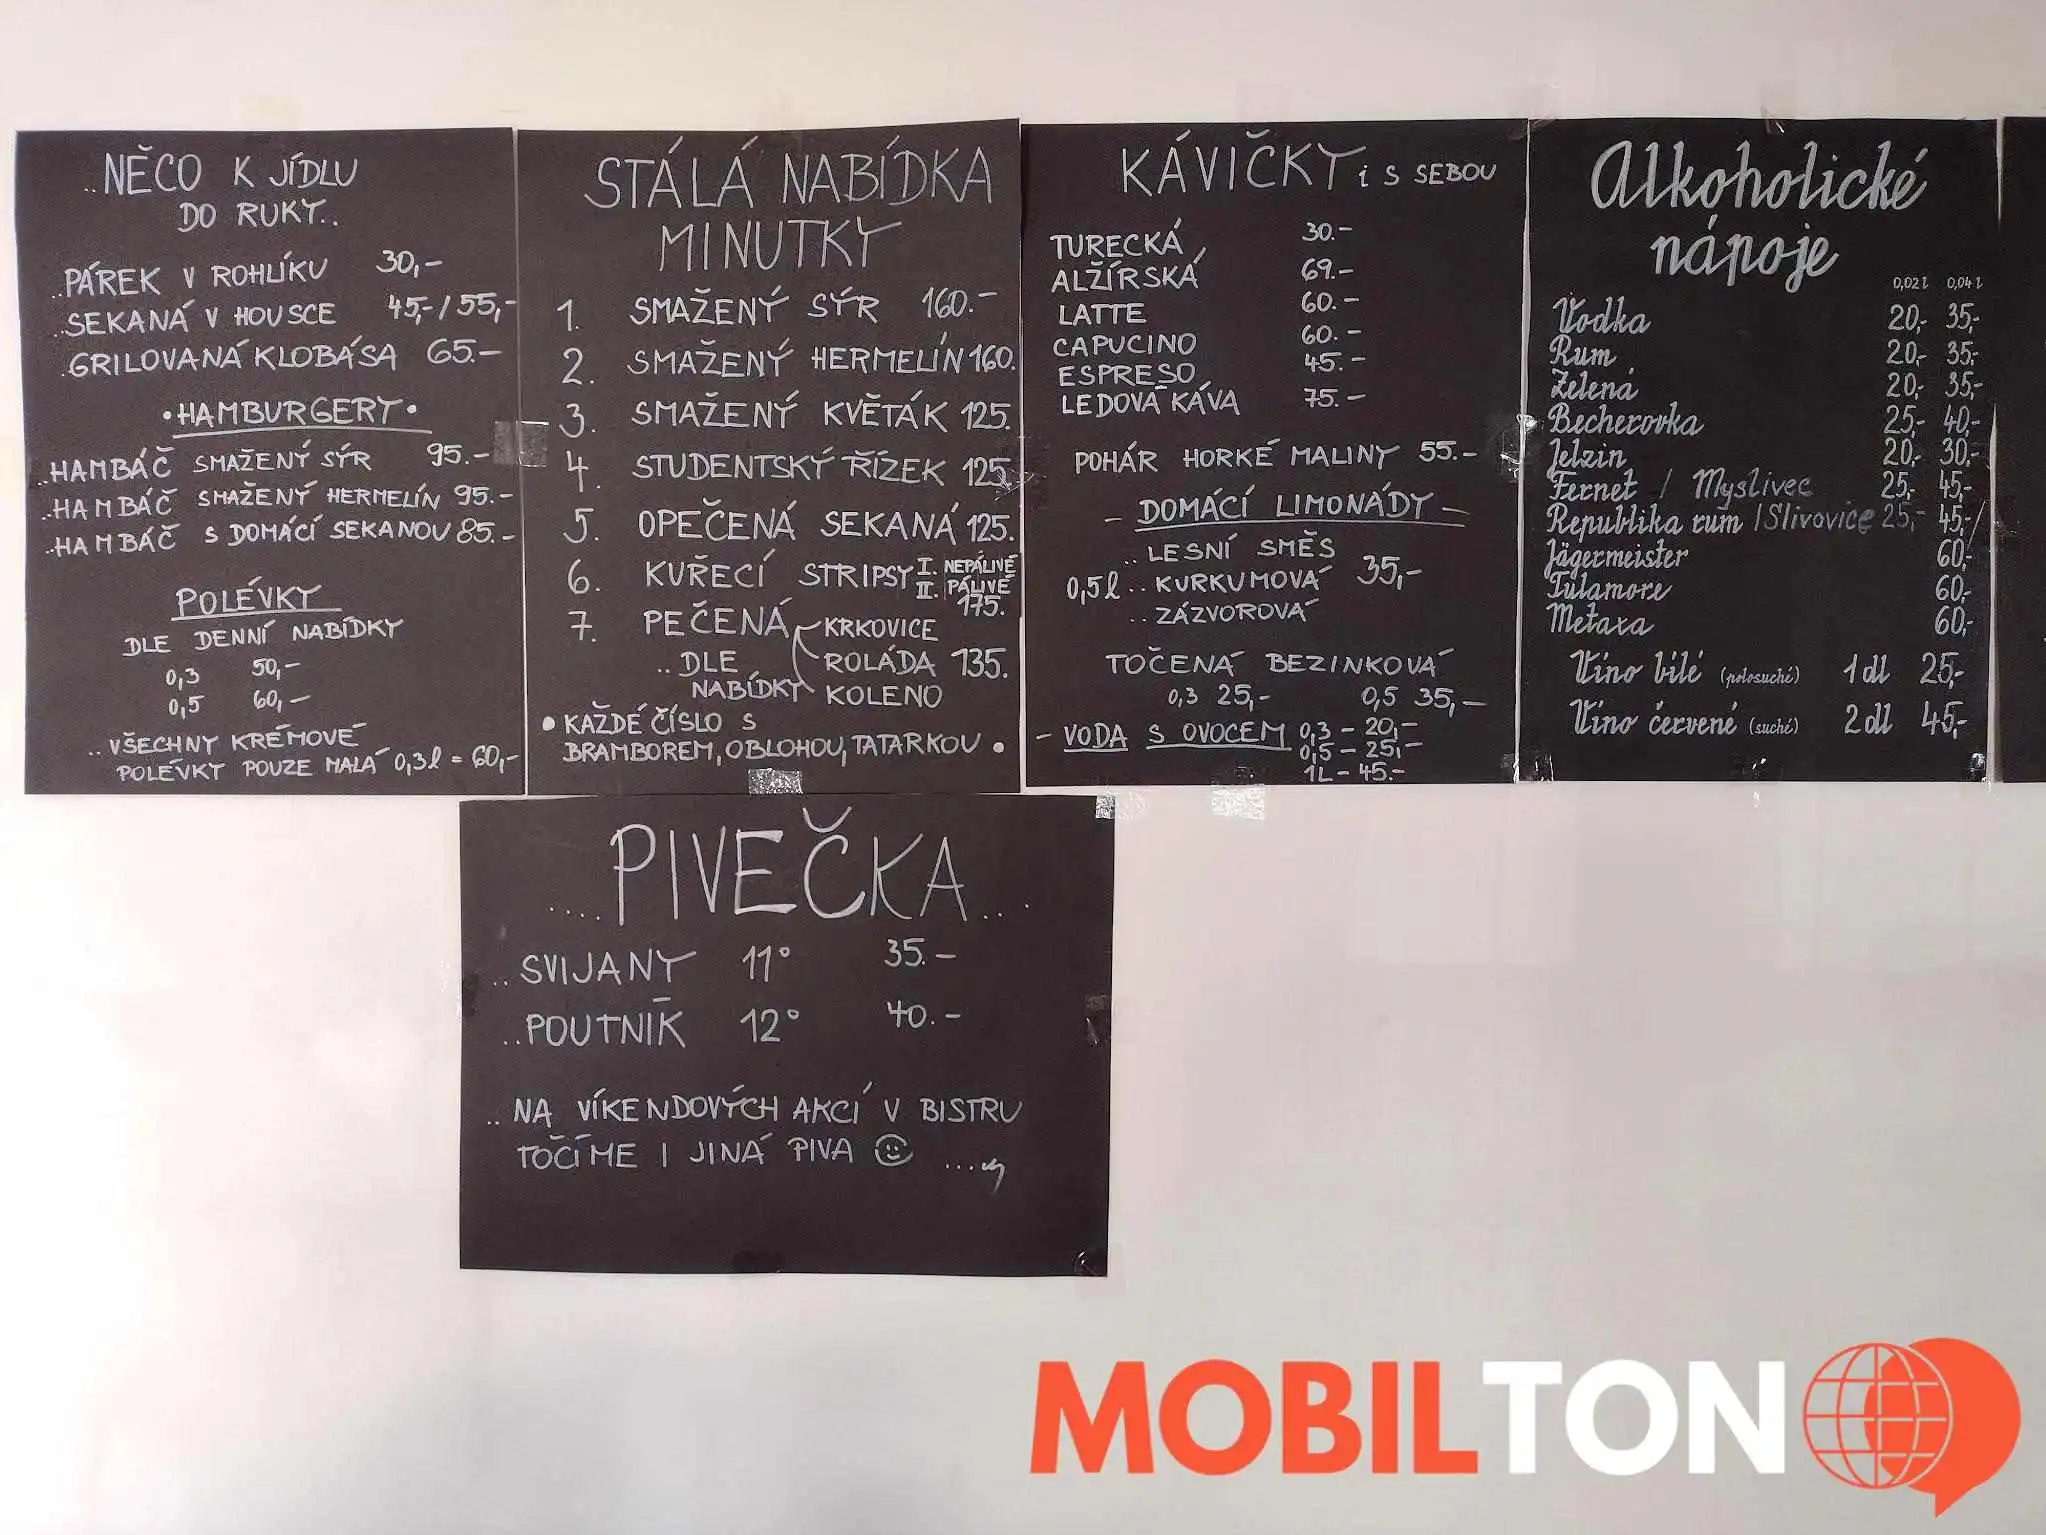 ..NĚCO K JÍDLU
DO RUKY..
..PÁREK V ROHLÍKU 30,-
..SEKANÁ V HOUSCE 45,-/55,-
.GRILOVANÁ KLOBÁSA 65.-
•HAMBURGERY•
..HAMBÁČ SMAŽENÝ SÝR 95.-
..HAMBÁČ SMAŽENÝ HERMELÍN 95.-
..HAMBÁČ S DOMÁCÍ SEKANOU 85.-
POLÉVKY
DLE DENNÍ NABÍDKY
0,3 50,-
0,5 60,-
..VŠECHNY KRÉMOVÉ
POLÉVKY POUZE MALÁ 0,3l = 60,-
STÁLÁ NABÍDKA
MINUTKY
1. SMAŽENÝ SÝR 160.-
2. SMAŽENÝ HERMELÍN 160.
3. SMAŽENÝ KVĚTÁK 125.
4. STUDENTSKÝ ŘÍZEK 125.
5. OPEČENÁ SEKANÁ 125.
6. KUŘECÍ STRIPSY I. NEPÁLIVÉ
II. PÁLIVÉ
175.
7. PEČENÁ KRKOVICE
..DLE ROLÁDA 135.
NABÍDKY KOLENO
• KAŽDÉ ČÍSLO S
BRAMBOREM, OBLOHOU, TATARKOU •
KÁVIČKY i S SEBOU
TURECKÁ 30.-
ALŽÍRSKÁ 69.-
LATTE 60.-
CAPUCINO 60.-
ESPRESO 45.-
LEDOVÁ KÁVA 75.-
POHÁR HORKÉ MALINY 55.-
- DOMÁCÍ LIMONÁDY -
..LESNÍ SMĚS
0,5l ..KURKUMOVÁ 35,-
..ZÁZVOROVÁ
TOČENÁ BEZINKOVÁ
0,3 25,- 0,5 35,-
- VODA S OVOCEM 0,3 - 20,-
0,5 - 25,-
1L - 45.-
Alkoholické
nápoje
0,02 l 0,04 l
Vodka 20,- 35,-
Rum 20,- 35,-
Zelená 20,- 35,-
Becherovka 25,- 40,-
Jelzin 20,- 30,-
Fernet / Myslivec 25,- 45,-
Republika rum / Slivovice 25,- 45,-
Jägermeister 60,-
Tulamore 60,-
Metaxa 60,-
Víno bílé (polosuché) 1 dl 25,-
Víno červené (suché) 2 dl 45,-
....PIVEČKA....
..SVIJANY 11° 35.-
..POUTNÍK 12° 40.-
..NA VÍKENDOVÝCH AKCÍ V BISTRU
TOČÍME I JINÁ PIVA ☺ ....
MOBILTON